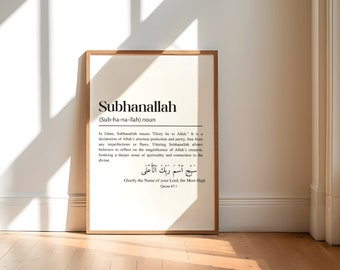 Subhanallah
(Sub·ha·na·llah) noun
In Islam, Subhanallah means "Glory be to Allah." It is a
declaration of Allah's absolute perfection and purity, free from
any imperfections or flaws. Uttering Subhanallah allows
believers to reflect on the magnificence of Allah's creation,
fostering a deeper sense of spirituality and connection to the
divine.
سَبِّحِ ٱسْمَ رَبِّكَ ٱلْأَعْلَى
Glorify the Name of your Lord, the Most High
Quran 87:1